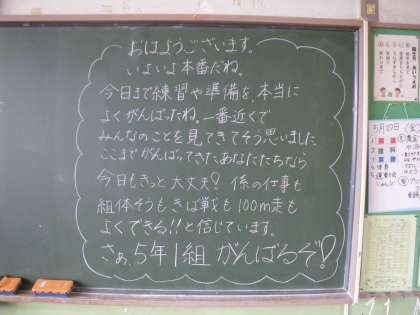 おはようございます。
いよいよ本番だね。
今日まで練習や準備を、本当に
よくがんばったね。一番近くで
みんなのことを見てきてそう思いました
ここまでがんばってきたあなたたちなら
今日もきっと大丈夫? 係の仕事も
組体そうもきば戦も100m走も
よくできる!!と信じています。
さぁ、5年1組 がんばるぞ!
5月27日(金)